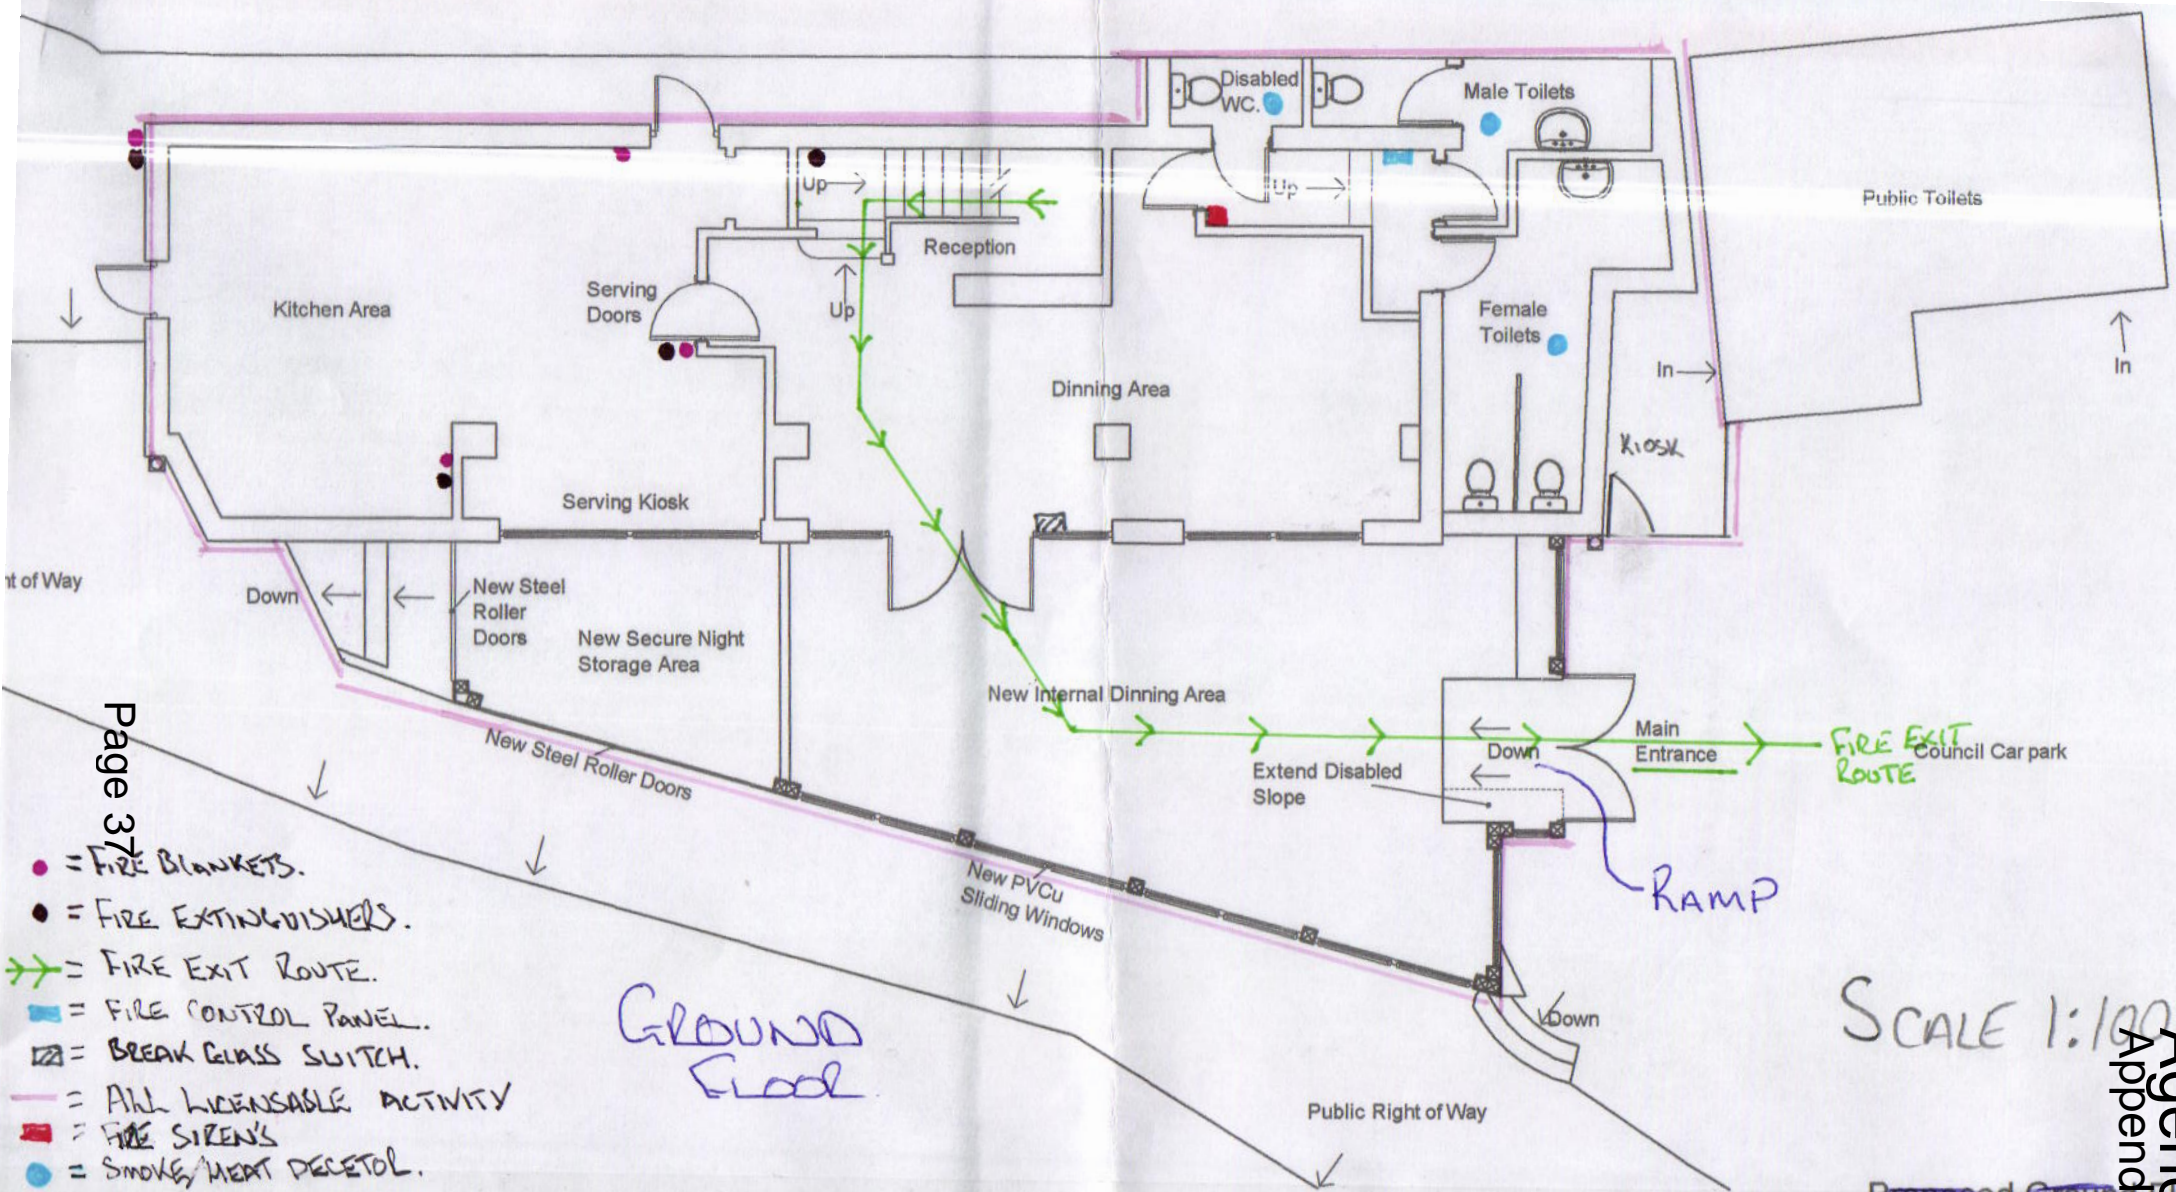 Disabled
WC.
Male Toilets
Public Toilets
Up
Up
Reception
Kitchen Area
Serving
Doors
Up
Female
Toilets
In
In
Dinning Area
KIOSK
Serving Kiosk
nt of Way
Down
New Steel
Roller
Doors
New Secure Night
Storage Area
New Internal Dinning Area
New Steel Roller Doors
Main
Entrance
Down
FIRE EXIT
ROUTE
Council Car park
Extend Disabled
Slope
Page 37
New PVCu
Sliding Windows
RAMP
= FIRE BLANKETS.
= FIRE EXTINGUISHERS.
= FIRE EXIT ROUTE.
= FIRE CONTROL PANEL.
= BREAK GLASS SWITCH.
= ALL LICENSABLE ACTIVITY
= FIRE SIREN'S
= SMOKE/HEAT DECETOR.
GROUND
FLOOR
Down
Public Right of Way
SCALE 1:100
Agen
Append